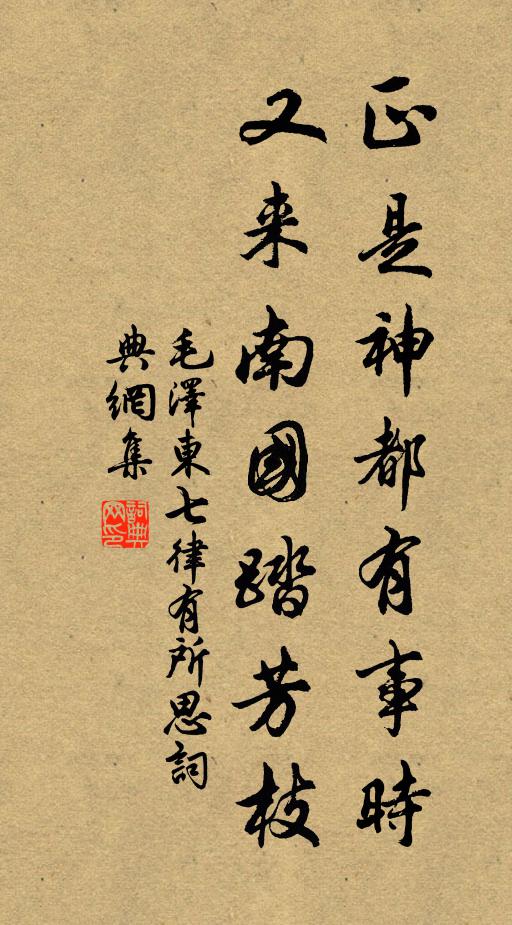 正是神都有事時
又来南國踏芳枝
毛澤東七律有所思詞
典網集
詞典网印